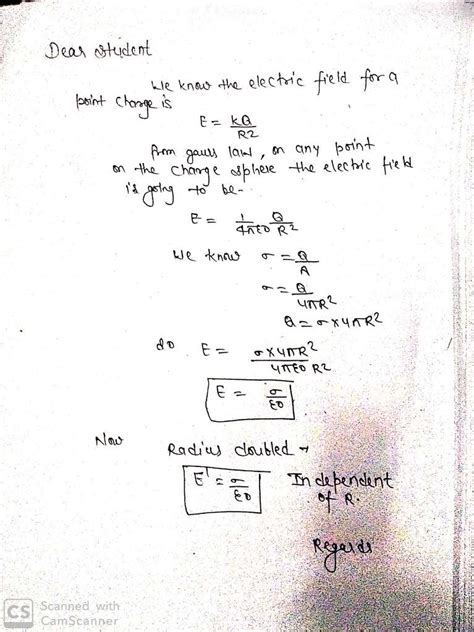 Dear Student
We know the electric field for a
point charge is
E = kQ
R2
from gauss law, on any point
on the charge sphere the electric field
is going to be-
E = 1 Q
4πε0 R2
We know σ = Q
A
σ = Q
4πR2
Q = σ×4πR2
so E = σ×4πR2
4πε0 R2
E = σ
ε0
Now Radius doubled →
E' = σ
ε0
Independent
of R.
Regards
CS Scanned with
CamScanner